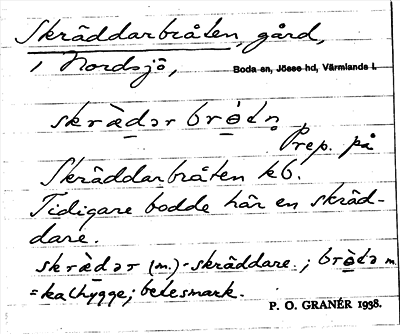 Skräddarbråten, gård,
i Nordsjö, Boda sn, Jösse hd, Värmlands l.
skrὰ̱dər brò̱tn̥
Prep. på
Skräddarbråten kb.
Tidigare bodde här en skräd-
dare.
skrὰ̱dər (m.) - skräddare.; brò̱tə m.
= kalhygge; betesmark.
P. O. GRANÉR 1938.